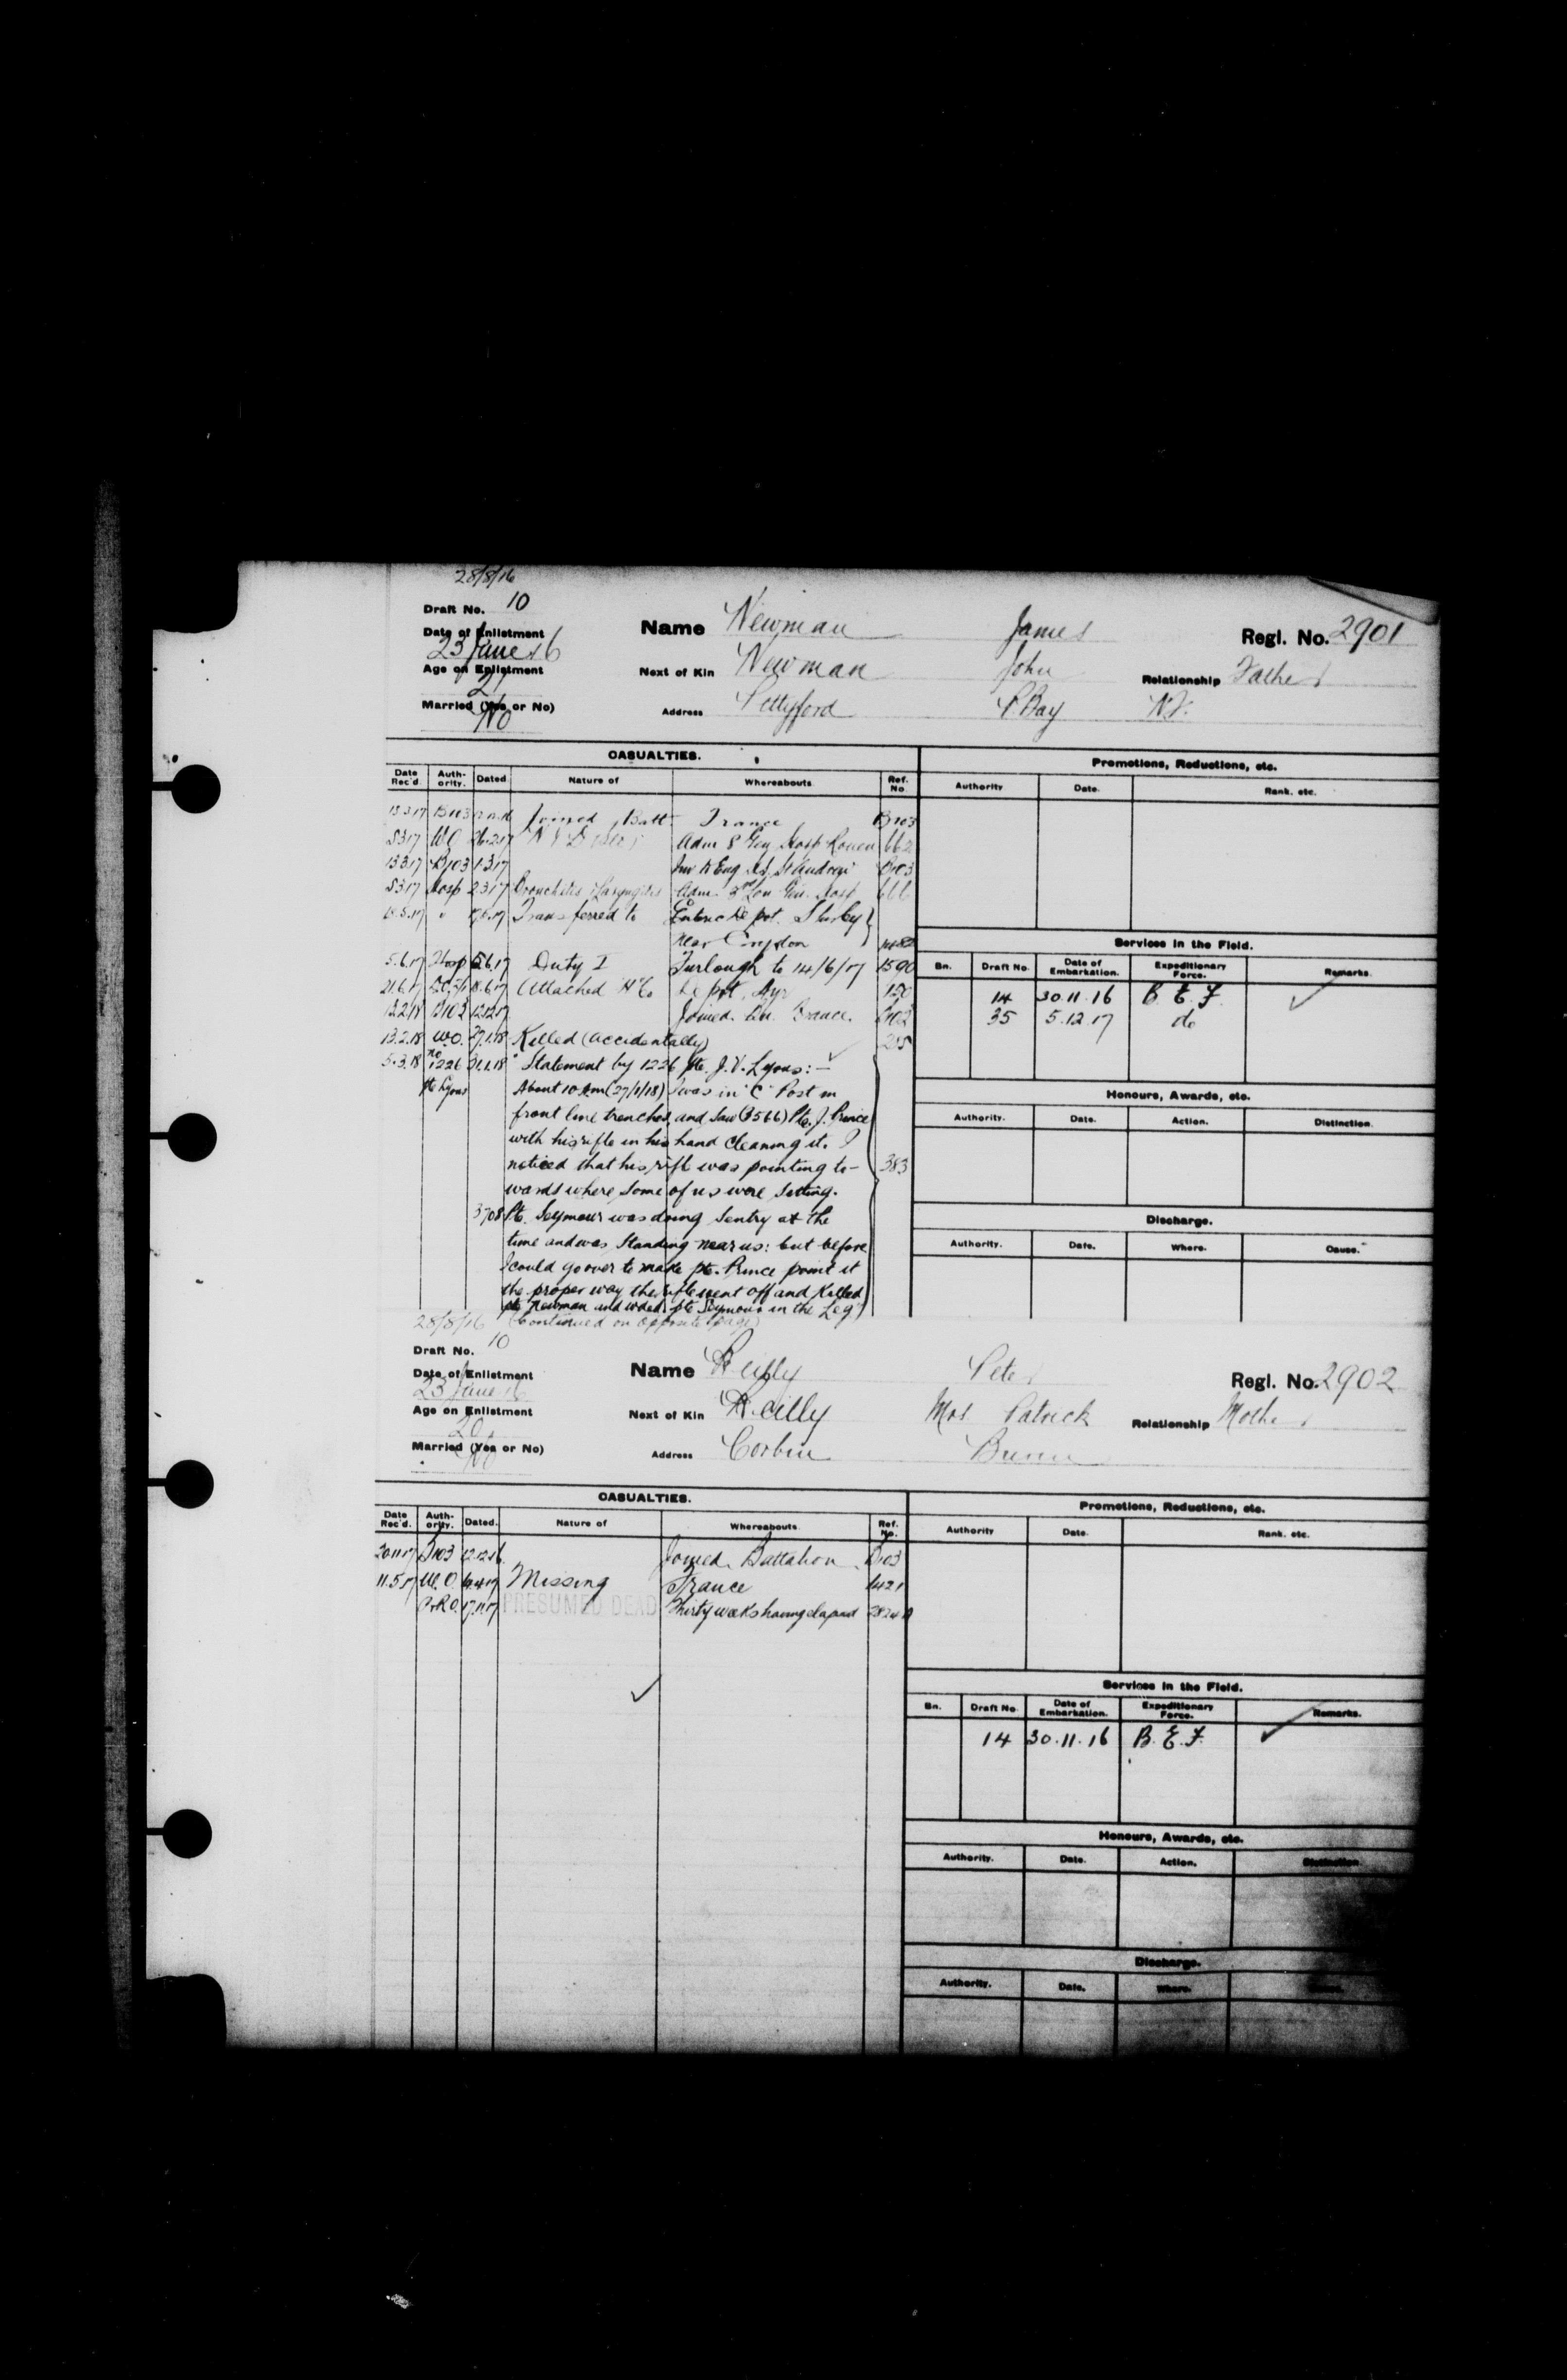 28/8/16
Draft No. 10
Date of Enlistment
23 June 16
Age on Enlistment
21
Married (Yes or No)
No
Name Newman James Regl. No. 2901
Next of Kin Newman John Relationship Father
Address Pettyford P. Bay N.F.
CASUALTIES.
Date Rec'd. Authority. Dated. Nature of Whereabouts Ref. No.
B103 Joined Batt France B103
5317 W.O. 26.2.17 Adm 8 Gen Hosp Rouen 662
13317 B103 1317 Inv to Eng St Andrew B103
5317 Hosp 2317 Bronchitis Laryngitis Adm. 3rd Lon Gen. Hosp 666
Transferred to Depot. Shirley
near Croydon
5.6.17 Hosp 5.6.17 Duty I Furlough to 14/6/17 1590
21.6.17 Attached "H" Co Depot, Ayr
B103 Joined Bn. France.
13.2.18 W.O. 27.1.18 Killed (accidentally) 215
5.3.18 No 1226 31.1.18 "Statement by 1226 Pte. J. V. Lyons: -
Pte Lyons About 10 am (27/1/18) I was in "C" Post in
front line trenches, and saw (3566) Pte. J. Prince
with his rifle in his hand cleaning it. I
noticed that his rifle was pointing to- 383
wards where some of us were sitting.
3708 Pte. Seymour was doing sentry at the
time and was standing near us: but before
I could go over to make Pte. Prince point it
the proper way the rifle went off and killed
Pte Newman and wded. Pte Seymour in the Leg."
(Continued on opposite page)
Promotions, Reductions, etc.
Authority Date. Rank. etc.
Services in the Field.
Bn. Draft No. Date of Embarkation. Expeditionary Force. Remarks.
14 30.11.16 B.E.F. ✓
35 5.12.17 do
Honours, Awards, etc.
Authority. Date. Action. Distinction.
Discharge.
Authority. Date. Where. Cause.
28/8/16
Draft No. 10
Date of Enlistment
23 June 16
Age on Enlistment
20
Married (Yes or No)
No
Name Reilly Peter Regl. No. 2902
Next of Kin Reilly Mrs Patrick Relationship Mother
Address Corbin Burin
CASUALTIES.
Date Rec'd. Authority. Dated. Nature of Whereabouts Ref. No.
B103 12.12.16 Joined Battalion B103
11.5.17 W.O. Missing France 1421
P&R.O. 17.11.17 PRESUMED DEAD Thirty weeks having elapsed
✓
Promotions, Reductions, etc.
Authority Date. Rank. etc.
Services in the Field.
Bn. Draft No. Date of Embarkation. Expeditionary Force. Remarks.
14 30.11.16 B.E.F. ✓
Honours, Awards, etc.
Authority. Date. Action. Distinction.
Discharge.
Authority. Date. Where.